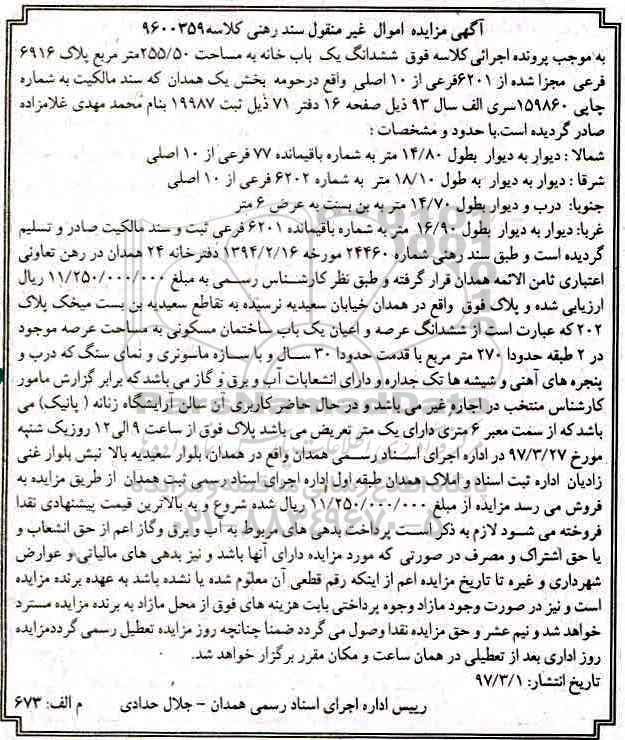 آگهی مزایده اموال غیر منقول سند رهنی کلاسه۹۶۰۰۳۵۹
به موجب پرونده اجرائی کلاسه فوق ششدانگ یک باب خانه به مساحت ۲۵۵/۵۰متر مربع پلاک ۶۹۱۶
فرعی مجزا شده از ۶۲۰۱فرعی از ۱۰ اصلی واقع درحومه بخش یک همدان که سند مالکیت به شماره
چاپی ۱۵۹۸۶۰سری الف سال ۹۳ ذیل صفحه ۱۶ دفتر ۷۱ ذیل ثبت ۱۹۹۸۷ بنام محمد مهدی غلامزاده
صادر گردیده است.با حدود و مشخصات :
شمالا : دیوار به دیوار بطول ۱۴/۸۰ متر به شماره باقیمانده ۷۷ فرعی از ۱۰ اصلی
شرقا : دیوار به دیوار به طول ۱۸/۱۰ متر به شماره ۶۲۰۲ فرعی از ۱۰ اصلی
جنوبا: درب و دیوار بطول ۱۴/۷۰ متر به بن بست به عرض ۶ متر
غربا: دیوار به دیوار بطول ۱۶/۹۰ متر به شماره باقیمانده ۶۲۰۱ فرعی ثبت و سند مالکیت صادر و تسلیم
گردیده است و طبق سند رهنی شماره ۲۴۴۶۰ مورخه ۱۳۹۴/۲/۱۶ دفترخانه ۲۴ همدان در رهن تعاونی
اعتباری ثامن الائمه همدان قرار گرفته و طبق نظر کارشناس رسمی به مبلغ ۱۱/۲۵۰/۰۰۰/۰۰۰ ریال
ارزیابی شده و پلاک فوق واقع در همدان خیابان سعیدیه نرسیده به تقاطع سعیدیه بن بست میخک پلاک
۲۰۲ که عبارت است از ششدانگ عرصه و اعیان یک باب ساختمان مسکونی به مساحت عرصه موجود
در ۲ طبقه حدودا ۲۷۰ متر مربع با قدمت حدودا ۳۰ سال و با سازه ماسونری و نمای سنگ که درب و
پنجره های آهنی و شیشه ها تک جداره و دارای انشعابات آب و برق و گاز می باشدکه برابر گزارش مامور
کارشناس منتخب در اجاره غیر می باشد و در حال حاضر کاربری آن سالن آرایشگاه زنانه ( پانیک) می
باشد که از سمت معبر ۶ متری دارای یک متر تعریض می باشد پلاک فوق از ساعت ۹ الی۱۲ روزیک شنبه
مورخ ۹۷/۳/۲۷ در اداره اجرای اسناد رسمی همدان واقع در همدان، بلوار سعیدیه بالا نبش بلوار غنی
زادیان اداره ثبت اسناد و املاک همدان طبقه اول اداره اجرای اسناد رسمی ثبت همدان از طریق مزایده به
فروش می رسد مزایده از مبلغ ۱۱/۲۵۰/۰۰۰/۰۰۰ ریال شده شروع و به بالاترین قیمت پیشنهادی نقدا
فروخته می شود لازم به ذکر است پرداخت بدهی های مربوط به آب و برق وگاز اعم از حق انشعاب و
یا حق اشتراک و مصرف در صورتی که مورد مزایده دارای آنها باشد و نیز بدهی های مالیاتی و عوارض
شهرداری و غیره تا تاریخ مزایده اعم از اینکه رقم قطعی آن معلوم شده یا نشده باشد به عهده برنده مزایده
است و نیز در صورت وجود مازاد وجوه پرداختی بابت هزینه های فوق از محل مازاد به برنده مزایده مسترد
خواهد شد و نیم عشر و حق مزایده نقدا وصول می گردد ضمنا چنانچه روز مزایده تعطیل رسمی گرددمزایده
روز اداری بعد از تعطیلی در همان ساعت و مکان مقرر برگزار خواهد شد.
تاریخ انتشار: ۹۷/۳/۱
رییس اداره اجرای اسناد رسمی همدان - جلال حدادی م الف: ۶۷۳